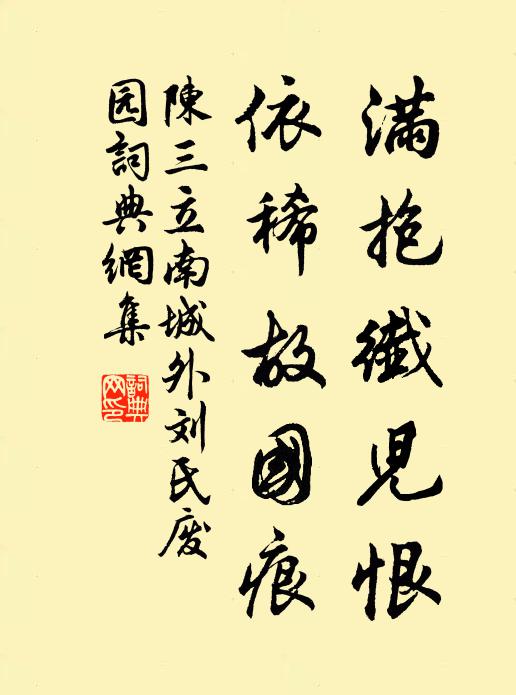 满抱纖児恨
依稀故國痕
陳三立南城外刘氏废
园詞典網集
詞典
网印